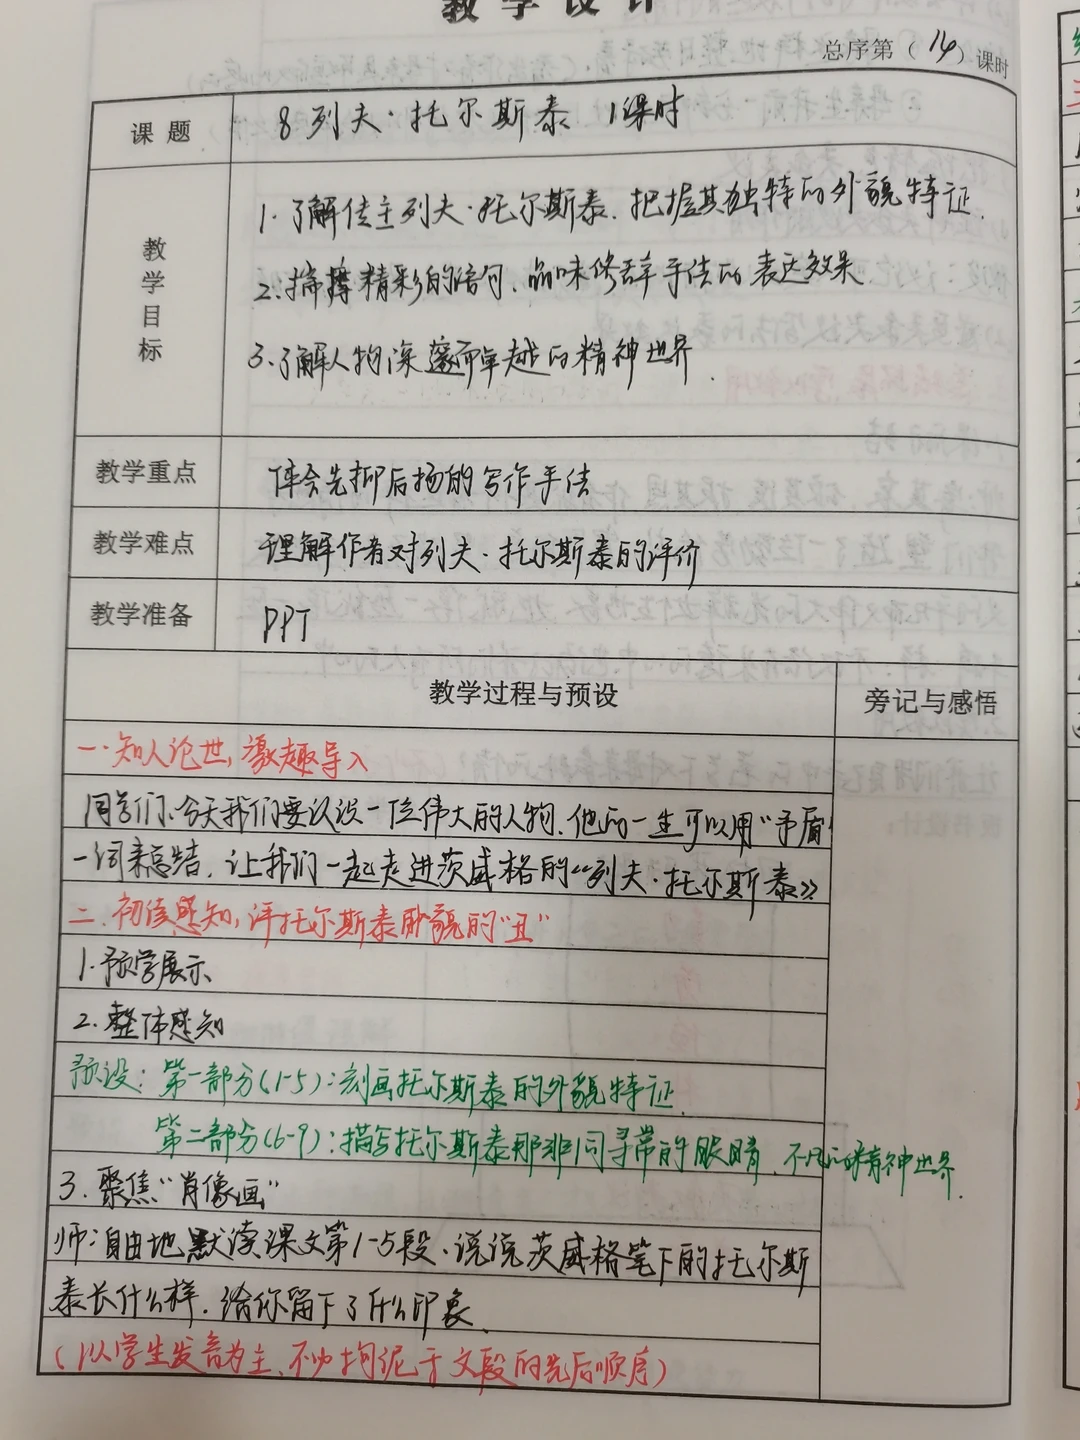 教学设计
总序第（14）课时
课题
8 列夫·托尔斯泰 1课时
教学目标
1.了解传主列夫·托尔斯泰.把握其独特的外貌特征.
2.揣摩精彩的语句、品味修辞手法的表达效果.
3.了解人物深邃而卓越的精神世界.
教学重点
体会先抑后扬的写作手法
教学难点
理解作者对列夫·托尔斯泰的评价
教学准备
PPT
教学过程与预设
旁记与感悟
一.知人论世,激趣导入
同学们、今天我们要认识一位伟大的人物.他的一生可以用"矛盾"
一词来总结.让我们一起走进茨威格的《列夫·托尔斯泰》
二.初读感知,评托尔斯泰外貌的"丑"
1.预学展示
2.整体感知
预设:第一部分(1-5):刻画托尔斯泰的外貌特征.
第二部分(6-9):描写托尔斯泰那非同寻常的眼睛、不凡的精神世界.
3.聚焦"肖像画"
师:自由地默读课文第1-5段、说说茨威格笔下的托尔斯
泰长什么样.给你留下了什么印象.
(以学生发言为主、不必拘泥于文段的先后顺序)